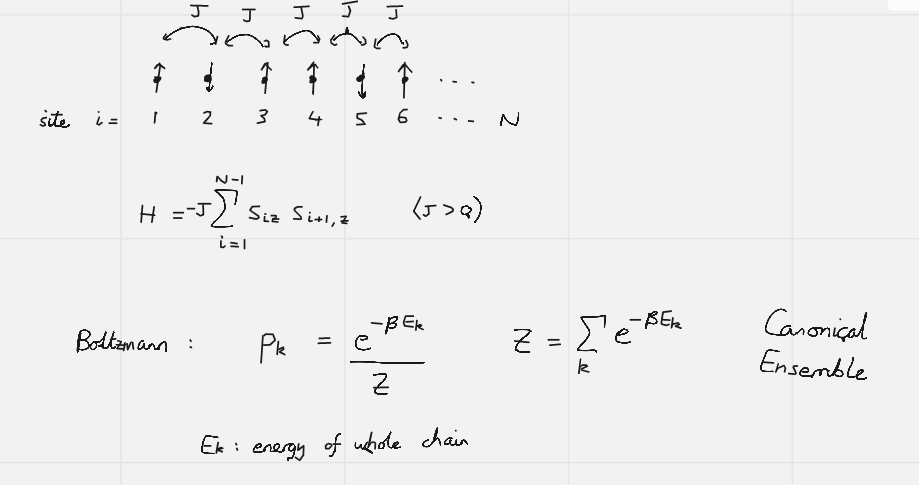 J J J J J
site i = 1 2 3 4 5 6 ... N
H = -J ∑_{i=1}^{N-1} S_{iz} S_{i+1,z} (J > 0)
Boltzmann : p_k = e^{-βE_k} / Z Z = ∑_k e^{-βE_k} Canonical Ensemble
E_k : energy of whole chain